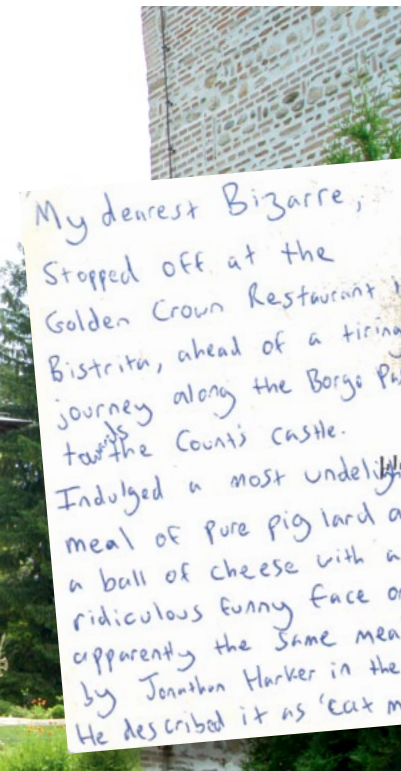 My dearest Bizarre,
Stopped off at the
Golden Crown Restaurant
Bistrita, ahead of a tiring
journey along the Borgo
towards the Count's castle.
Indulged a most
meal of pure pig lard
a ball of cheese with a
ridiculous funny face
apparently the same
by Jonathon Harker in the
He described it as 'cat